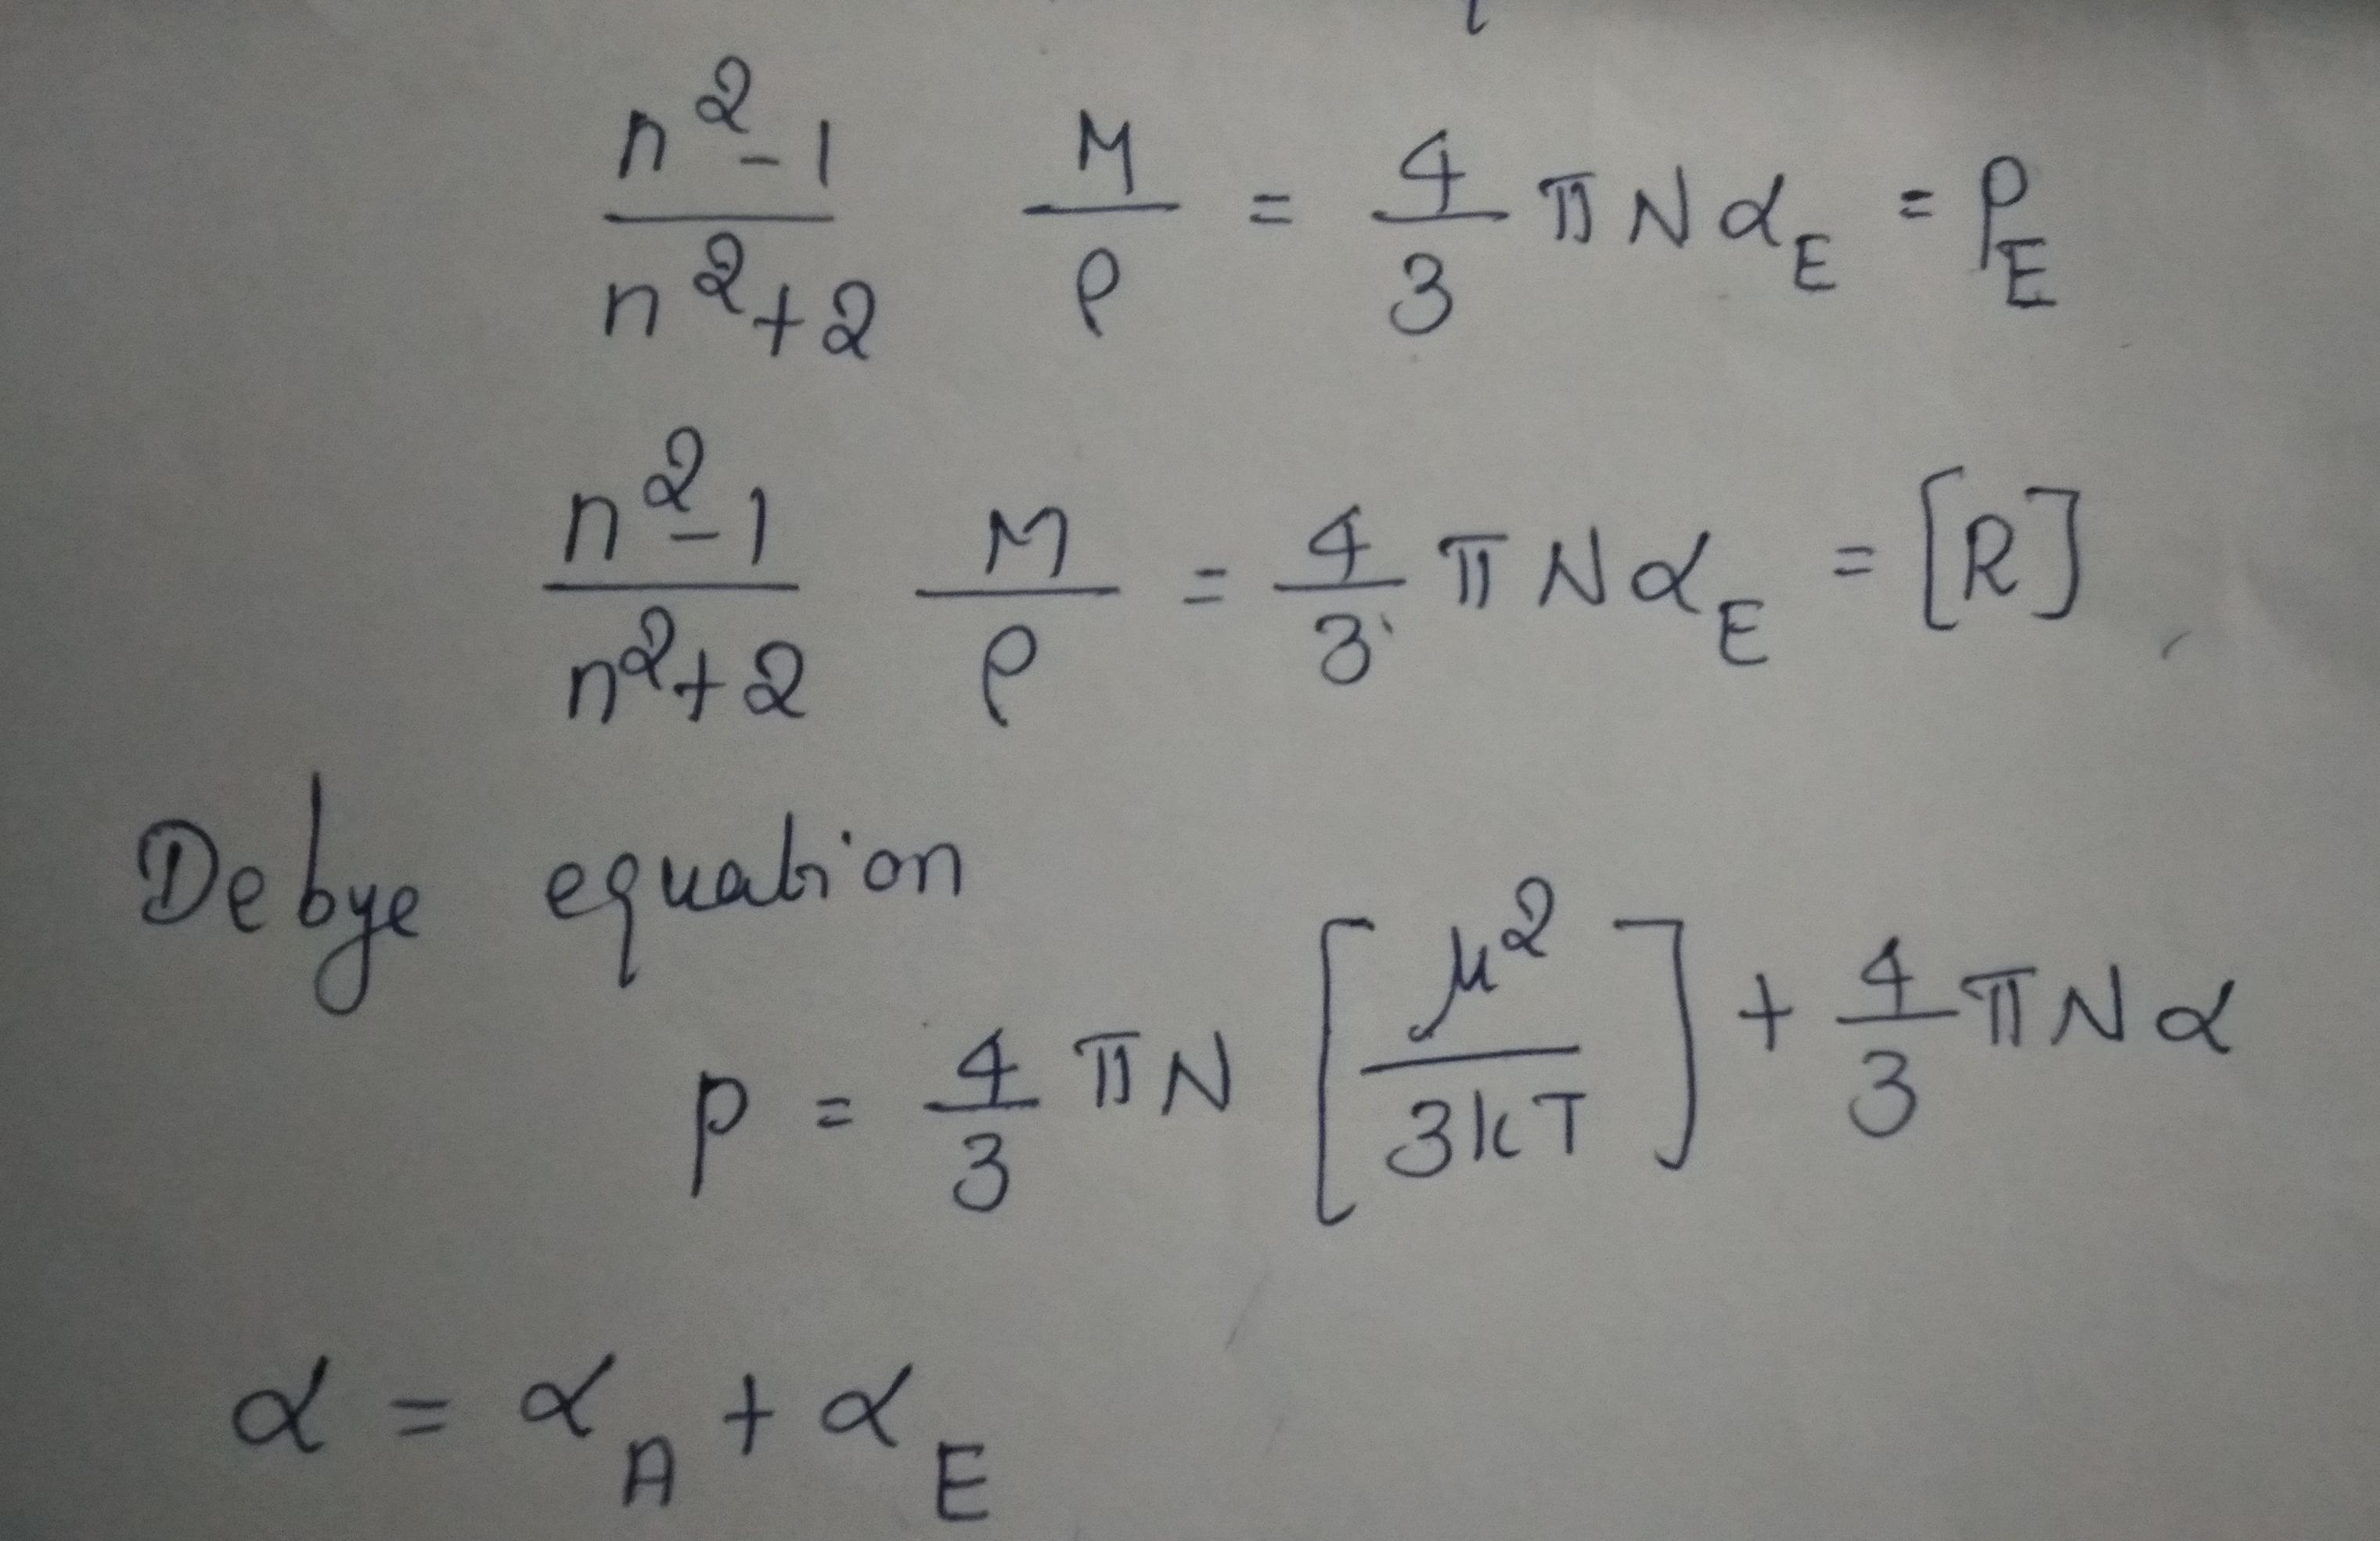 n²-1/n²+2 M/ρ = 4/3 π N α_E = P_E
n²-1/n²+2 M/ρ = 4/3 π N α_E = [R]
Debye equation
P = 4/3 π N [μ²/3kT] + 4/3 π N α
α = α_A + α_E